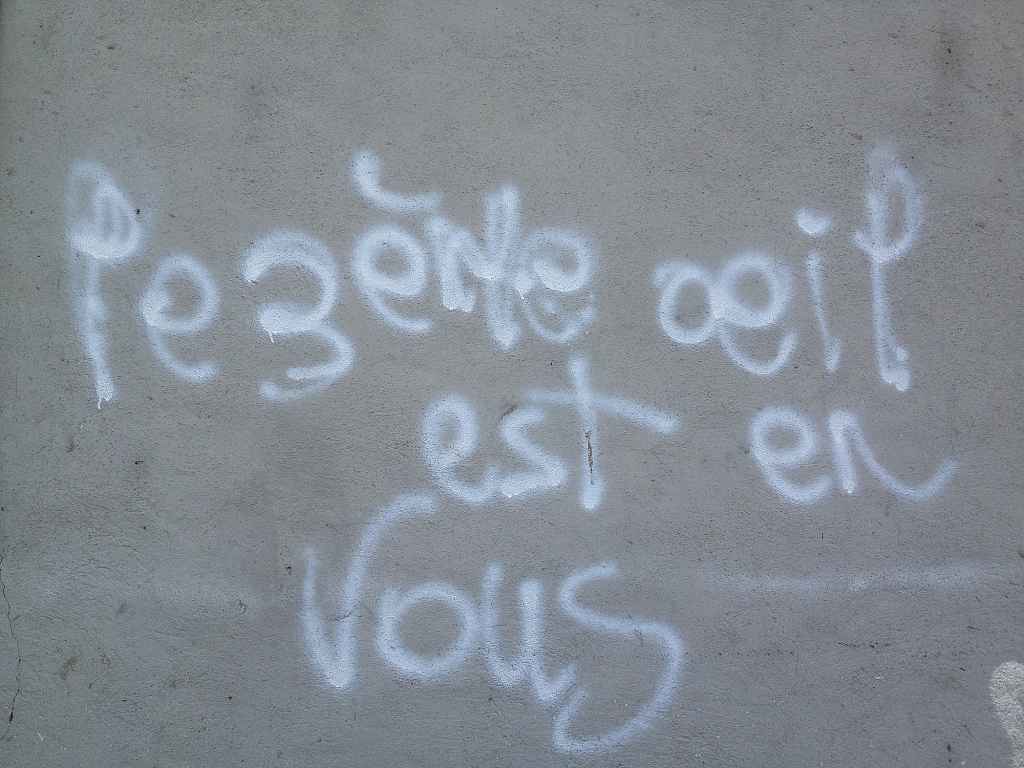 le 3ème œil
est en
Vous